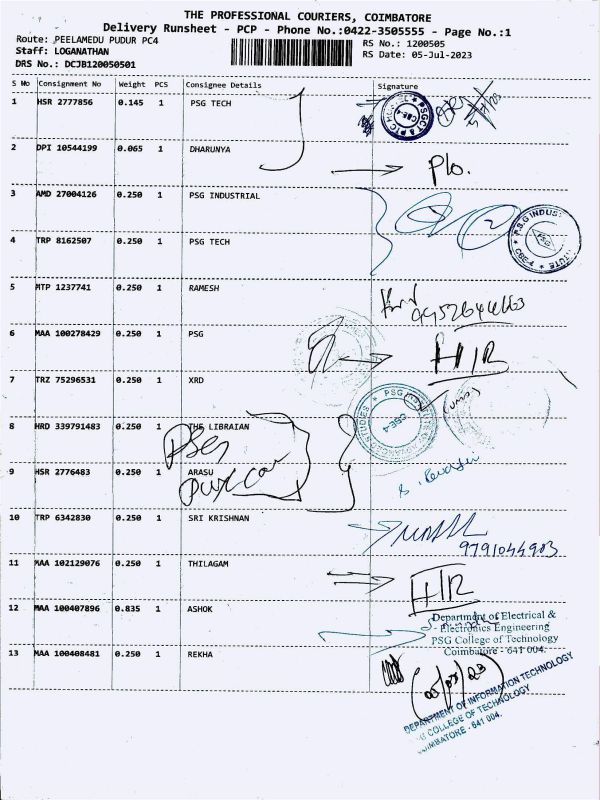 THE PROFESSIONAL COURIERS, COIMBATORE
Delivery Runsheet - PCP - Phone No.:0422-3505555 - Page No.:1
Route: PEELAMEDU PUDUR PC4
RS No.: 1200505
Staff: LOGANATHAN
RS Date: 05-Jul-2023
DRS No.: DCJB120050501
S No Consignment No Weight PCS Consignee Details Signature
1 HSR 2777856 0.145 1 PSG TECH
2 DPI 10544199 0.065 1 DHARUNYA
3 AMD 27004126 0.250 1 PSG INDUSTRIAL
4 TRP 8162507 0.250 1 PSG TECH
5 MTP 1237741 0.250 1 RAMESH
6 MAA 100278429 0.250 1 PSG
7 TRZ 75296531 0.250 1 XRD
8 HRD 339791483 0.250 1 THE LIBRAIAN
PSG
9 HSR 2776483 0.250 1 ARASU
10 TRP 6342830 0.250 1 SRI KRISHNAN
9791044903
11 MAA 102129076 0.250 1 THILAGAM
H/R
12 MAA 100407896 0.835 1 ASHOK
Department of Electrical &
Electronics Engineering
PSG College of Technology
Coimbatore - 641 004.
13 MAA 100408481 0.250 1 REKHA
DEPARTMENT OF INFORMATION TECHNOLOGY
PSG COLLEGE OF TECHNOLOGY
COIMBATORE - 641 004.